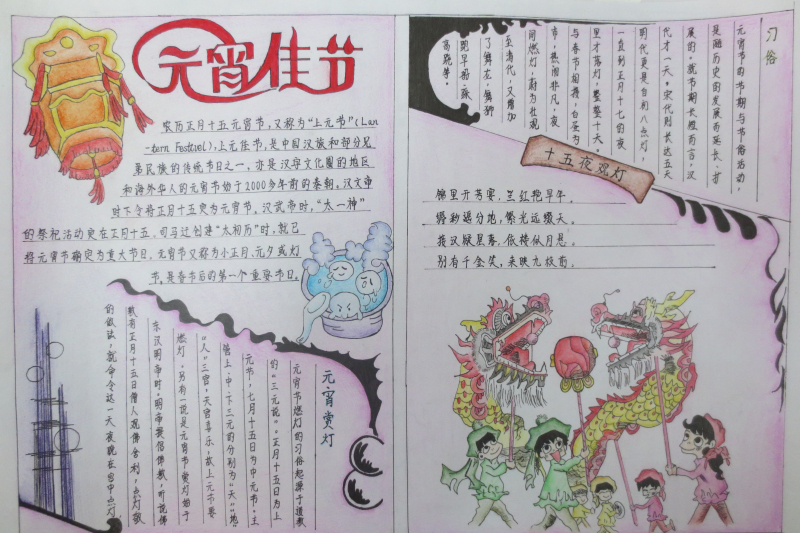 元宵佳节
农历正月十五元宵节，又称为“上元节”(Lan
-tern Festivel)，上元佳节，是中国汉族和部分兄
弟民族的传统节日之一，亦是汉字文化圈的地区
和海外华人的元宵节始于2000多年前的秦朝。汉文帝
时下令将正月十五定为元宵节。汉武帝时，“太一神”
的祭祀活动定在正月十五。司马迁创建“太初历”时，就已
将元宵节确定为重大节日。元宵节又称为小正月、元夕或灯
节，是春节后的第一个重要节日。
元宵赏灯
元宵节燃灯的习俗起源于道教
的“三元说”。正月十五日为上
元节，七月十五日为中元节。主
管上、中、下三元的分别为“天”“地”
“人”三官，天官喜乐，故上元节要
燃灯。另有一说是元宵节赏灯始于
东汉明帝时，明帝提倡佛教，听说佛
教有正月十五日僧人观佛舍利，点灯敬
的做法，就命令这一天夜晚在宫中点灯
习俗
元宵节的节期与节俗活动，
是随历史的发展而延长、扩
展的。就节期长短而言，汉
代才一天。宋代则长达五天
明代更是自初八点灯，
一直到正月十七的夜
里才落灯，整整十天。
与春节相接，白昼为
市，热闹非凡，夜
间燃灯，蔚为壮观
至清代，又增加
了舞龙、舞狮
跑旱船、踩
高跷等。
十五夜观灯
锦里开芳宴，兰红艳早年。
缛彩遥分地，繁光远缀天。
接汉疑星落，依楼似月悬。
别有千金笑，来映九枝前。